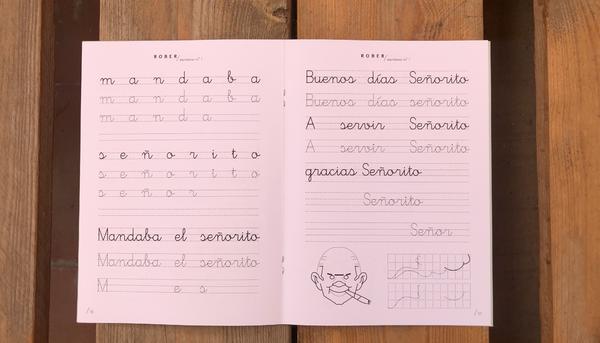 ROBER
m a n d a b a
m a n d a b a
m a n d a
s e ñ o r i t o
s e ñ o r i t o
s e ñ o r
Mandaba el señorito
Mandaba el señorito
M e s
ROBER
Buenos días Señorito
Buenos días señorito
A servir Señorito
A servir Señorito
gracias Señorito
Señorito
Señor